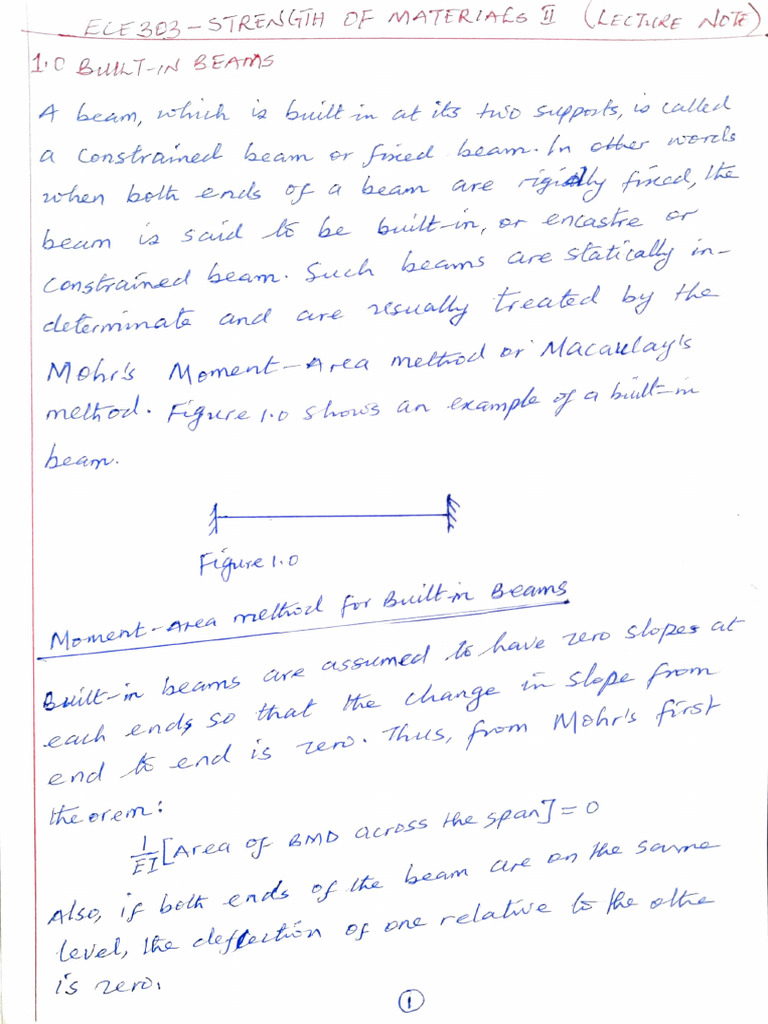 ECE 303 - STRENGTH OF MATERIALS II (LECTURE NOTE)
1.0 BUILT-IN BEAMS
A beam, which is built in at its two supports, is called
a constrained beam or fixed beam. In other words
when both ends of a beam are rigidly fixed, the
beam is said to be built-in, or encastre or
constrained beam. Such beams are statically in-
determinate and are usually treated by the
Mohr's Moment-Area method or Macaulay's
method. Figure 1.0 shows an example of a built-in
beam.
Figure 1.0
Moment-Area method for Built-in Beams
Built-in beams are assumed to have zero slopes at
each ends so that the change in slope from
end to end is zero. Thus, from Mohr's first
theorem:
1/EI [Area of BMD across the span] = 0
Also, if both ends of the beam are on the same
level, the deflection of one relative to the othe
is zero.
1